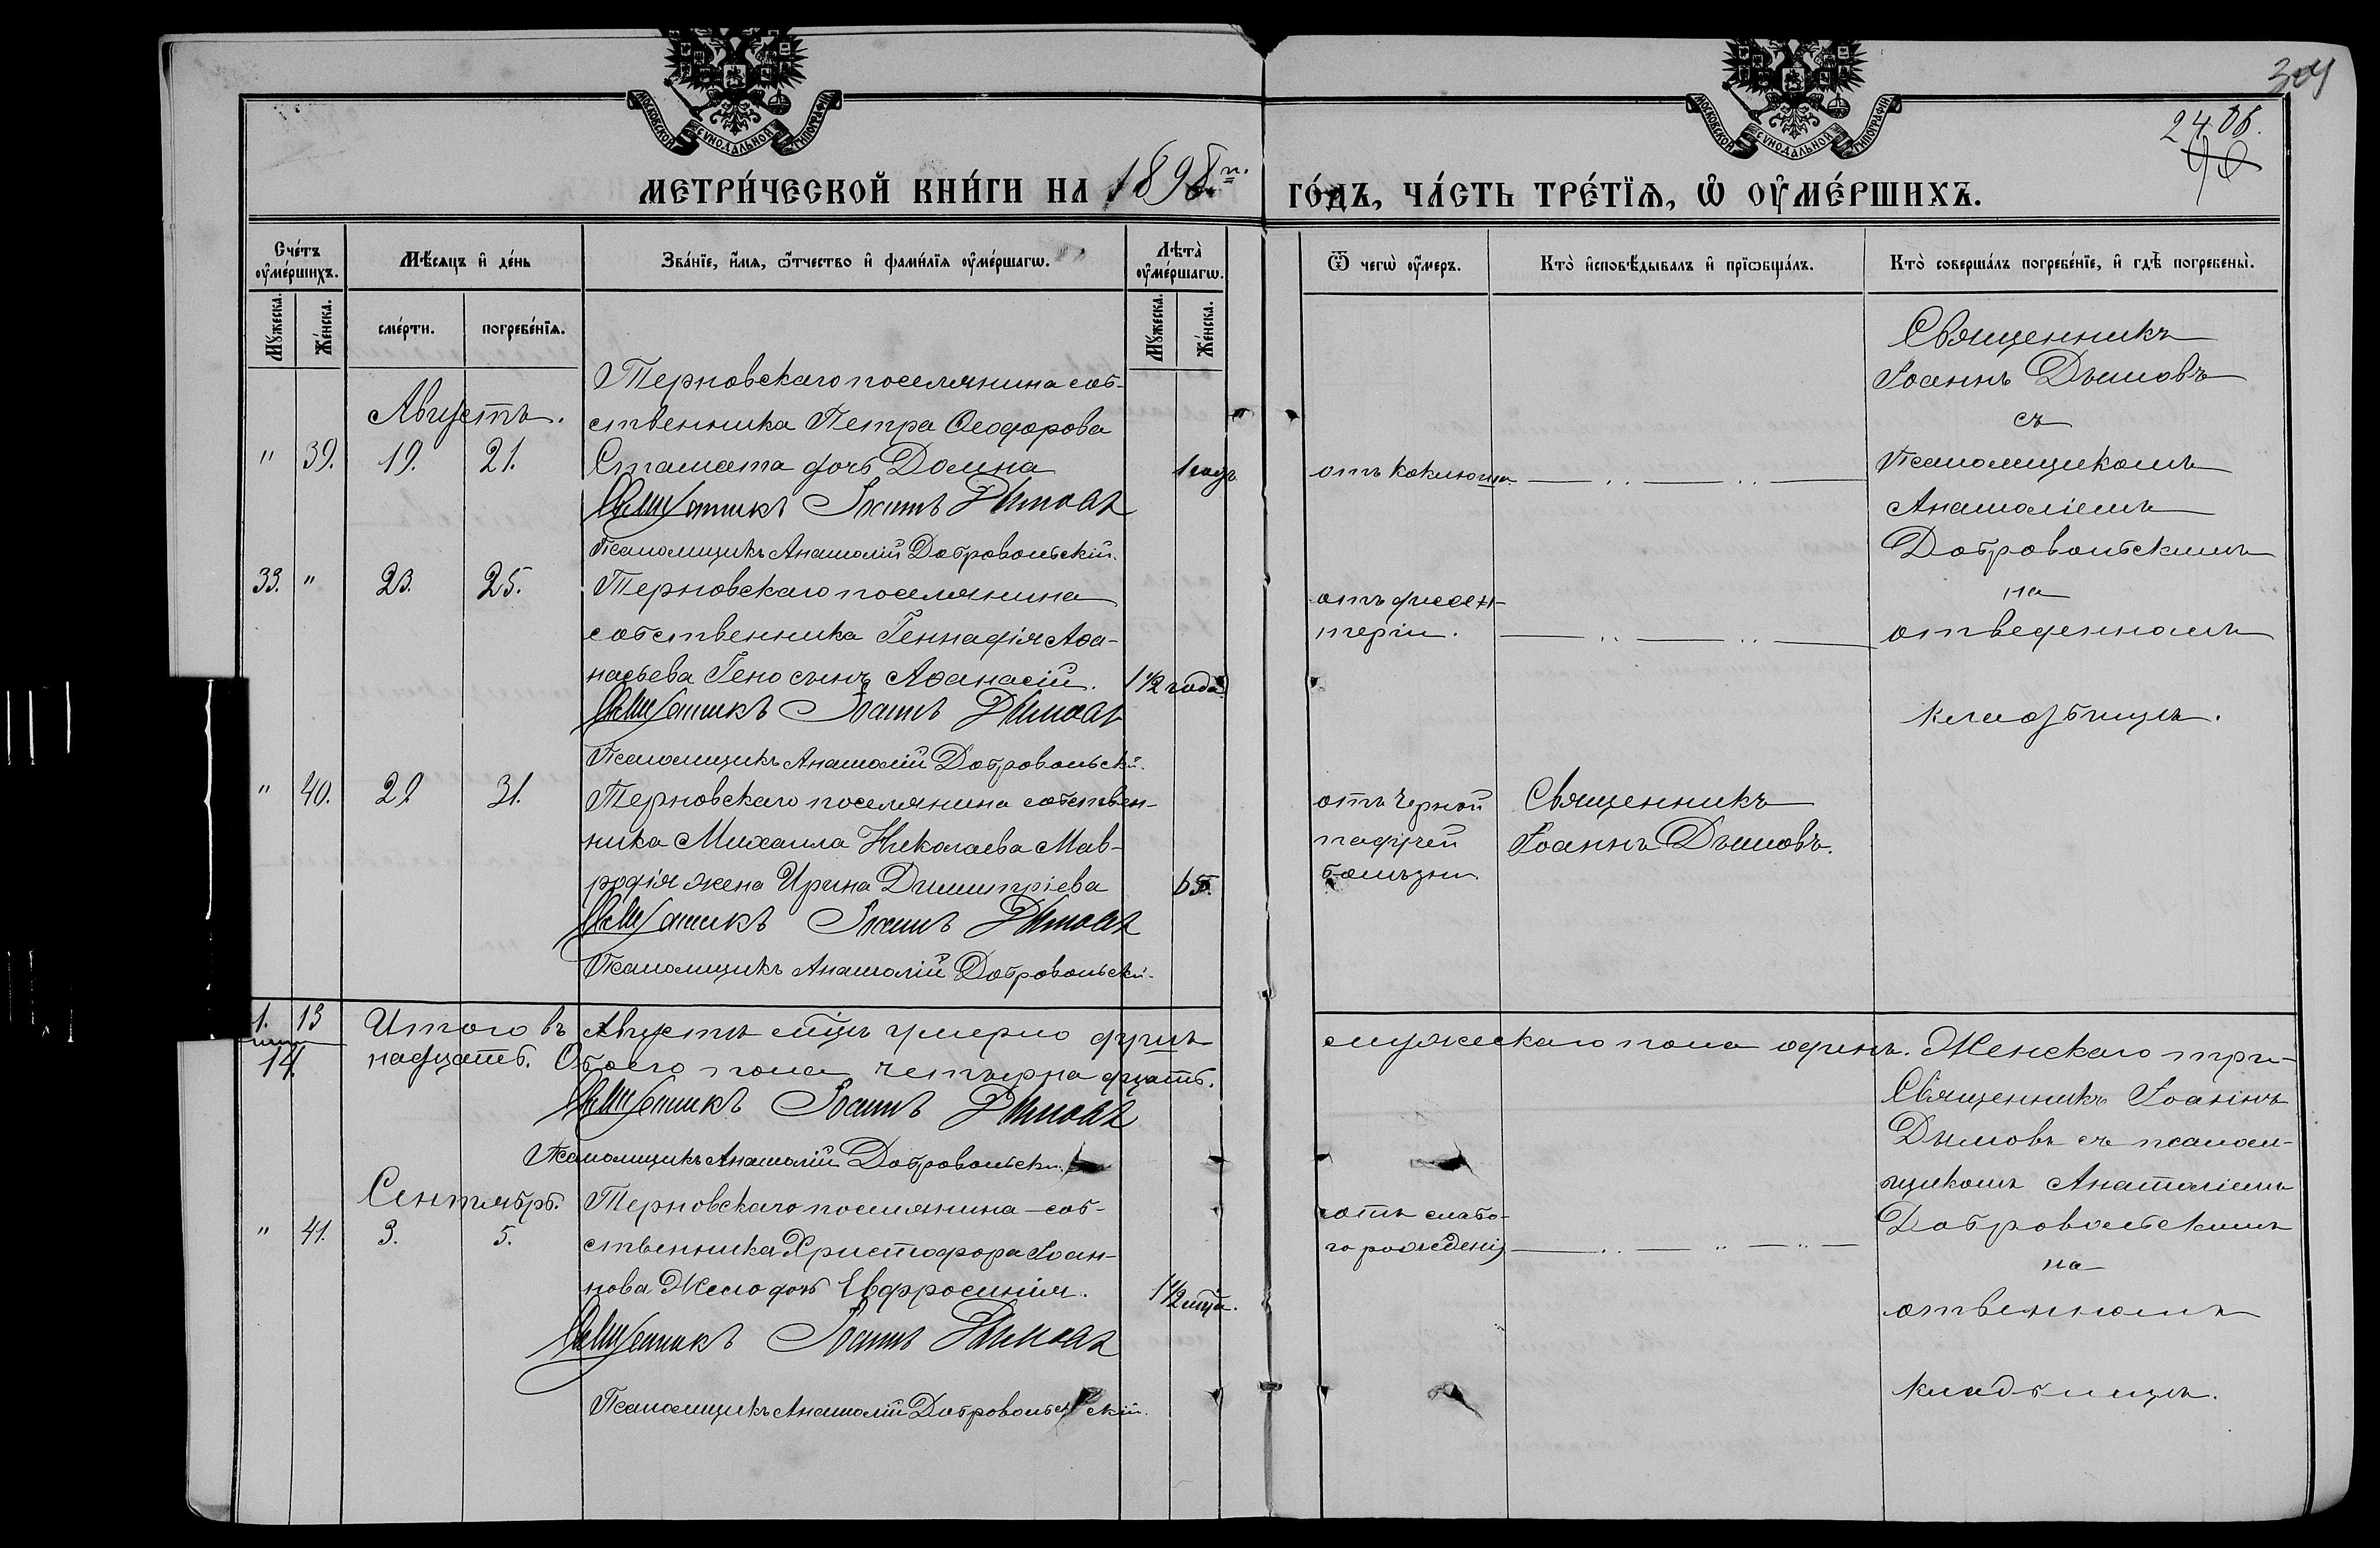 МОСКОВСКОЙ СѴНОДАЛЬНОЙ ТИПОГРАФІИ
МОСКОВСКОЙ СѴНОДАЛЬНОЙ ТИПОГРАФІИ
304
2406.
МЕТРИ́ЧЕСКОЙ КНИ́ГИ НА 1898 г. ГО́ДЪ, ЧА́СТЬ ТРЕ́ТЇѦ, Ѡ҆ ОУ҆МЕ́РШИХЪ.
Сче́тъ оу҆ме́ршихъ.
Мꙋ́жеска.
Же́нска.
Мѣ́сяцъ и҆ де́нь
сме́рти.
погребе́нїѧ.
Зва́нїе, и҆́мѧ, ѻ҆́тчество и҆ фамѝлїѧ оу҆ме́ршагѡ.
Лѣ́та̀ оу҆ме́ршагѡ.
Мꙋ́жеска.
Же́нска.
Ѿ чегѡ̀ оу҆́меръ.
Кто̀ и҆сповѣ́дывалъ и҆ прїѡбща́лъ.
Кто̀ соверша́лъ погребе́нїе, и҆ гдѣ̀ погребены̀.
Августъ.
" 39. 19. 21.
Терновскаго поселянина соб-
ственника Петра Ѳеодорова
Стамата дочь Домна
1 годъ
Священникъ Іоаннъ Дымовъ
Псаломщикъ Анатолій Добровольскій.
отъ коклюша
Священникъ
Іоаннъ Дымовъ
съ
Псаломщикомъ
Анатоліемъ
Добровольскимъ
на
отведенномъ
кладбищѣ.
33. " 23. 25.
Терновскаго поселянина
собственника Геннадія Аѳа-
насьева Гено сынъ Аѳанасій.
1 1/2 года
Священникъ Іоаннъ Дымовъ
Псаломщикъ Анатолій Добровольскій.
отъ дисен-
теріи.
" 40. 29 31.
Терновскаго поселянина собствен-
ника Михаила Николаева Мав-
родія жена Ирина Димитріева
65.
Священникъ Іоаннъ Дымовъ
Псаломщикъ Анатолій Добровольскій.
отъ черной
падучей
болѣзни.
Священникъ
Іоаннъ Дымовъ.
1. 13
14.
Итого въ Августѣ мѣцѣ умерло душъ мужескаго пола одинъ. Женскаго три-
надцать. Обоего пола четырнадцать.
Священникъ Іоаннъ Дымовъ
Псаломщикъ Анатолій Добровольскій.
Сентябрь.
" 41. 3. 5.
Терновскаго поселянина-соб-
ственника Христофора Іоан-
нова Жело дочь Евфросинія.
1 1/2 мѣца.
Священникъ Іоаннъ Дымовъ
Псаломщикъ Анатолій Добровольскій.
отъ слабо-
го рожденія
Священникъ Іоаннъ
Дымовъ съ псалом-
щикомъ Анатоліемъ
Добровольскимъ
на
отвенномъ
кладбищѣ.